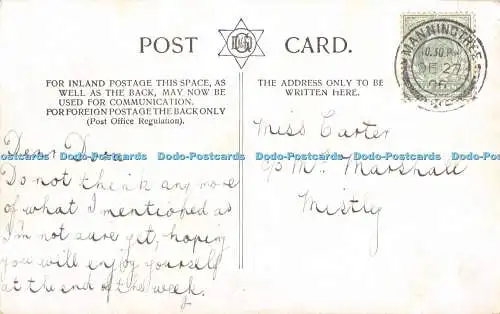 POST CARD.
FOR INLAND POSTAGE THIS SPACE, AS
WELL AS THE BACK, MAY NOW BE
USED FOR COMMUNICATION.
FOR FOREIGN POSTAGE THE BACK ONLY
(Post Office Regulation).
THE ADDRESS ONLY TO BE
WRITTEN HERE.
MANNINGTREE
10.30 PM
DE 27
06
Dear
Do not think any more
of what I mentioned as
I'm not sure yet, hoping
you will enjoy yourself
at the end of the week.
Miss Carter
c/o Mr. Marshall
Mistly
Dodo-Postcards Dodo-Postcards Dodo-Postcards Dodo-Postcards Dodo-Postcards Dodo-Postcards